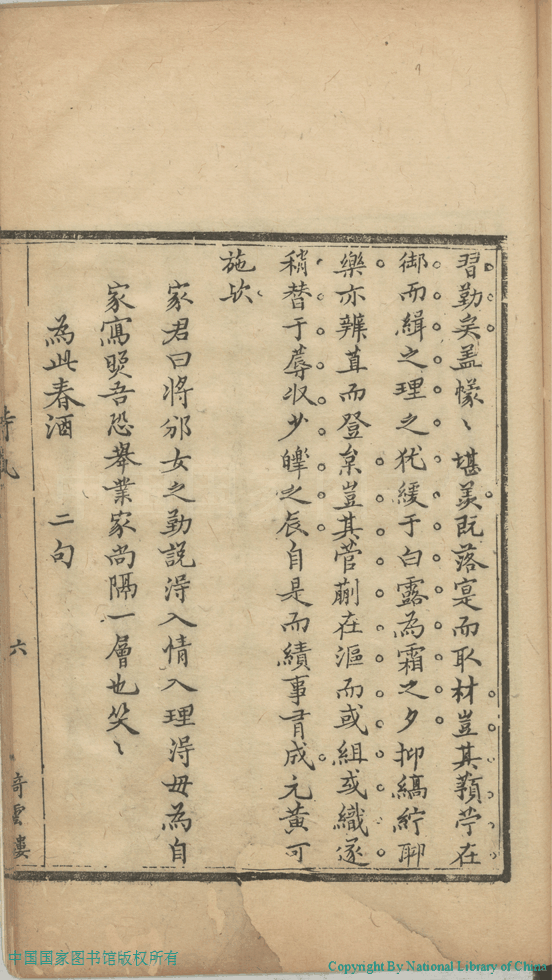 習勤矣盖懞〻堪羡既落寔而取材豈其蘋苧在
御而緝之理之犹緩于白露為霜之夕抑縞紵聊
樂亦辨苴而登枲豈其菅蒯在漚而或組或織遂
稍替于蓐收少皞之辰自是而績事胥成元黃可
施欤
家君曰将邠女之勤說淂入情入理淂毋為自
家寫照吾恐舉業家尚隔一層也笑〻
為此春酒 二句
六
中国国家图书馆版权所有
Copyright By National Library of China